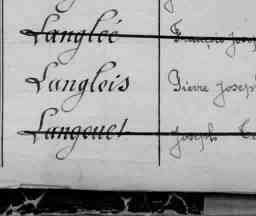 Langleé François Jose
Langlois Pierre Josep
Langouet Joseph